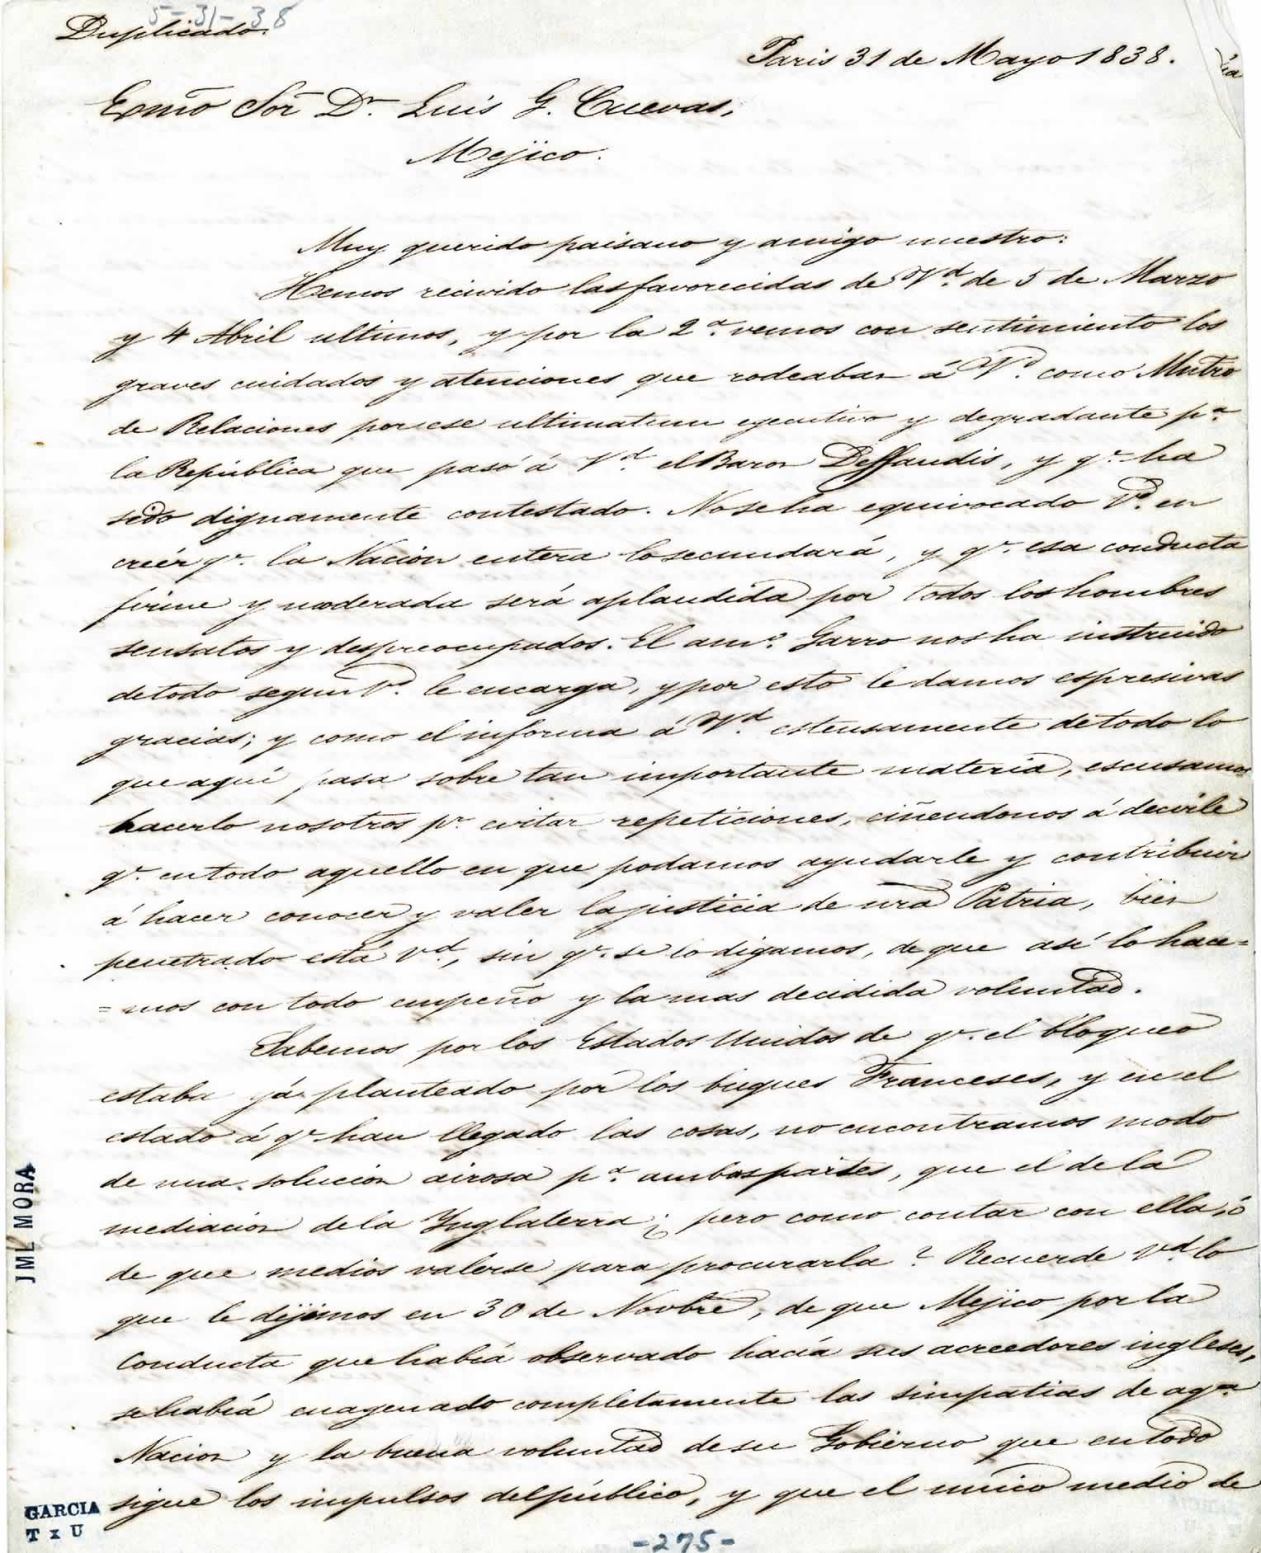 5-31-38
Duplicado.
Paris 31 de Mayo 1838.
Exmo Sor Dn. Luis G. Cuevas,
Mejico.
Muy querido paisano y amigo nuestro:
Hemos recivido las favorecidas de Vd. de 5 de Marzo
y 4 Abril ultimos, y por la 2a. vemos con sentimiento los
graves cuidados y atenciones que rodeaban á Vd. como Mntro
de Relaciones por ese ultimatum ejecutivo y degradante pa
la República que pasó á Vd. el Baron Deffaudis, y qe. ha
sido dignamente contestado. No se ha equivocado Vd. en
creér qe. la Nacion entera lo secundará, y qe. esa conducta
firme y moderada será aplaudida por todos los hombres
sensatos y despreocupados. El amo. Garro nos ha instruido
de todo segun Vd. le encarga, y por esto le damos espresivas
gracias; y como el informa á Vd. estensamente de todo lo
que aqui pasa sobre tan importante materia, escusamos
hacerlo nosotros pr. evitar repeticiones, ciñendonos á decirle
qe. en todo aquello en que podamos ayudarle y contribuir
á hacer conocer y valer la justicia de nra Patria, bien
penetrado está Vd., sin qe. se lo digamos, de que asi lo hace=
=mos con todo empeño y la mas decidida voluntad.
Sabemos por los Estados Unidos de qe. el bloqueo
estaba yá planteado por los buques Franceses, y en el
estado á qe. han llegado las cosas, no encontramos modo
de una solucion airosa pa. ambas partes, que el de la
mediacion de la Ynglaterra; ¿ pero como contar con ella, ó
de que medios valerse para procurarla? Recuerde Vd. lo
que le dijimos en 30 de Novbre, de que Mejico por la
conducta que habia observado hacia sus acreedores ingleses,
se habia enagenado completamente las simpatias de aqa.
Nacion y la buena voluntad de su Gobierno que en todo
sigue los impulsos del público, y que el unico medio de
JML MORA
GARCIA
TxU
-275-